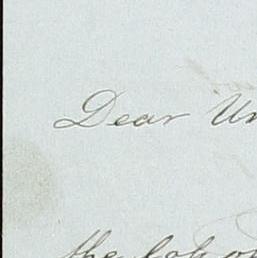 Dear Un
the